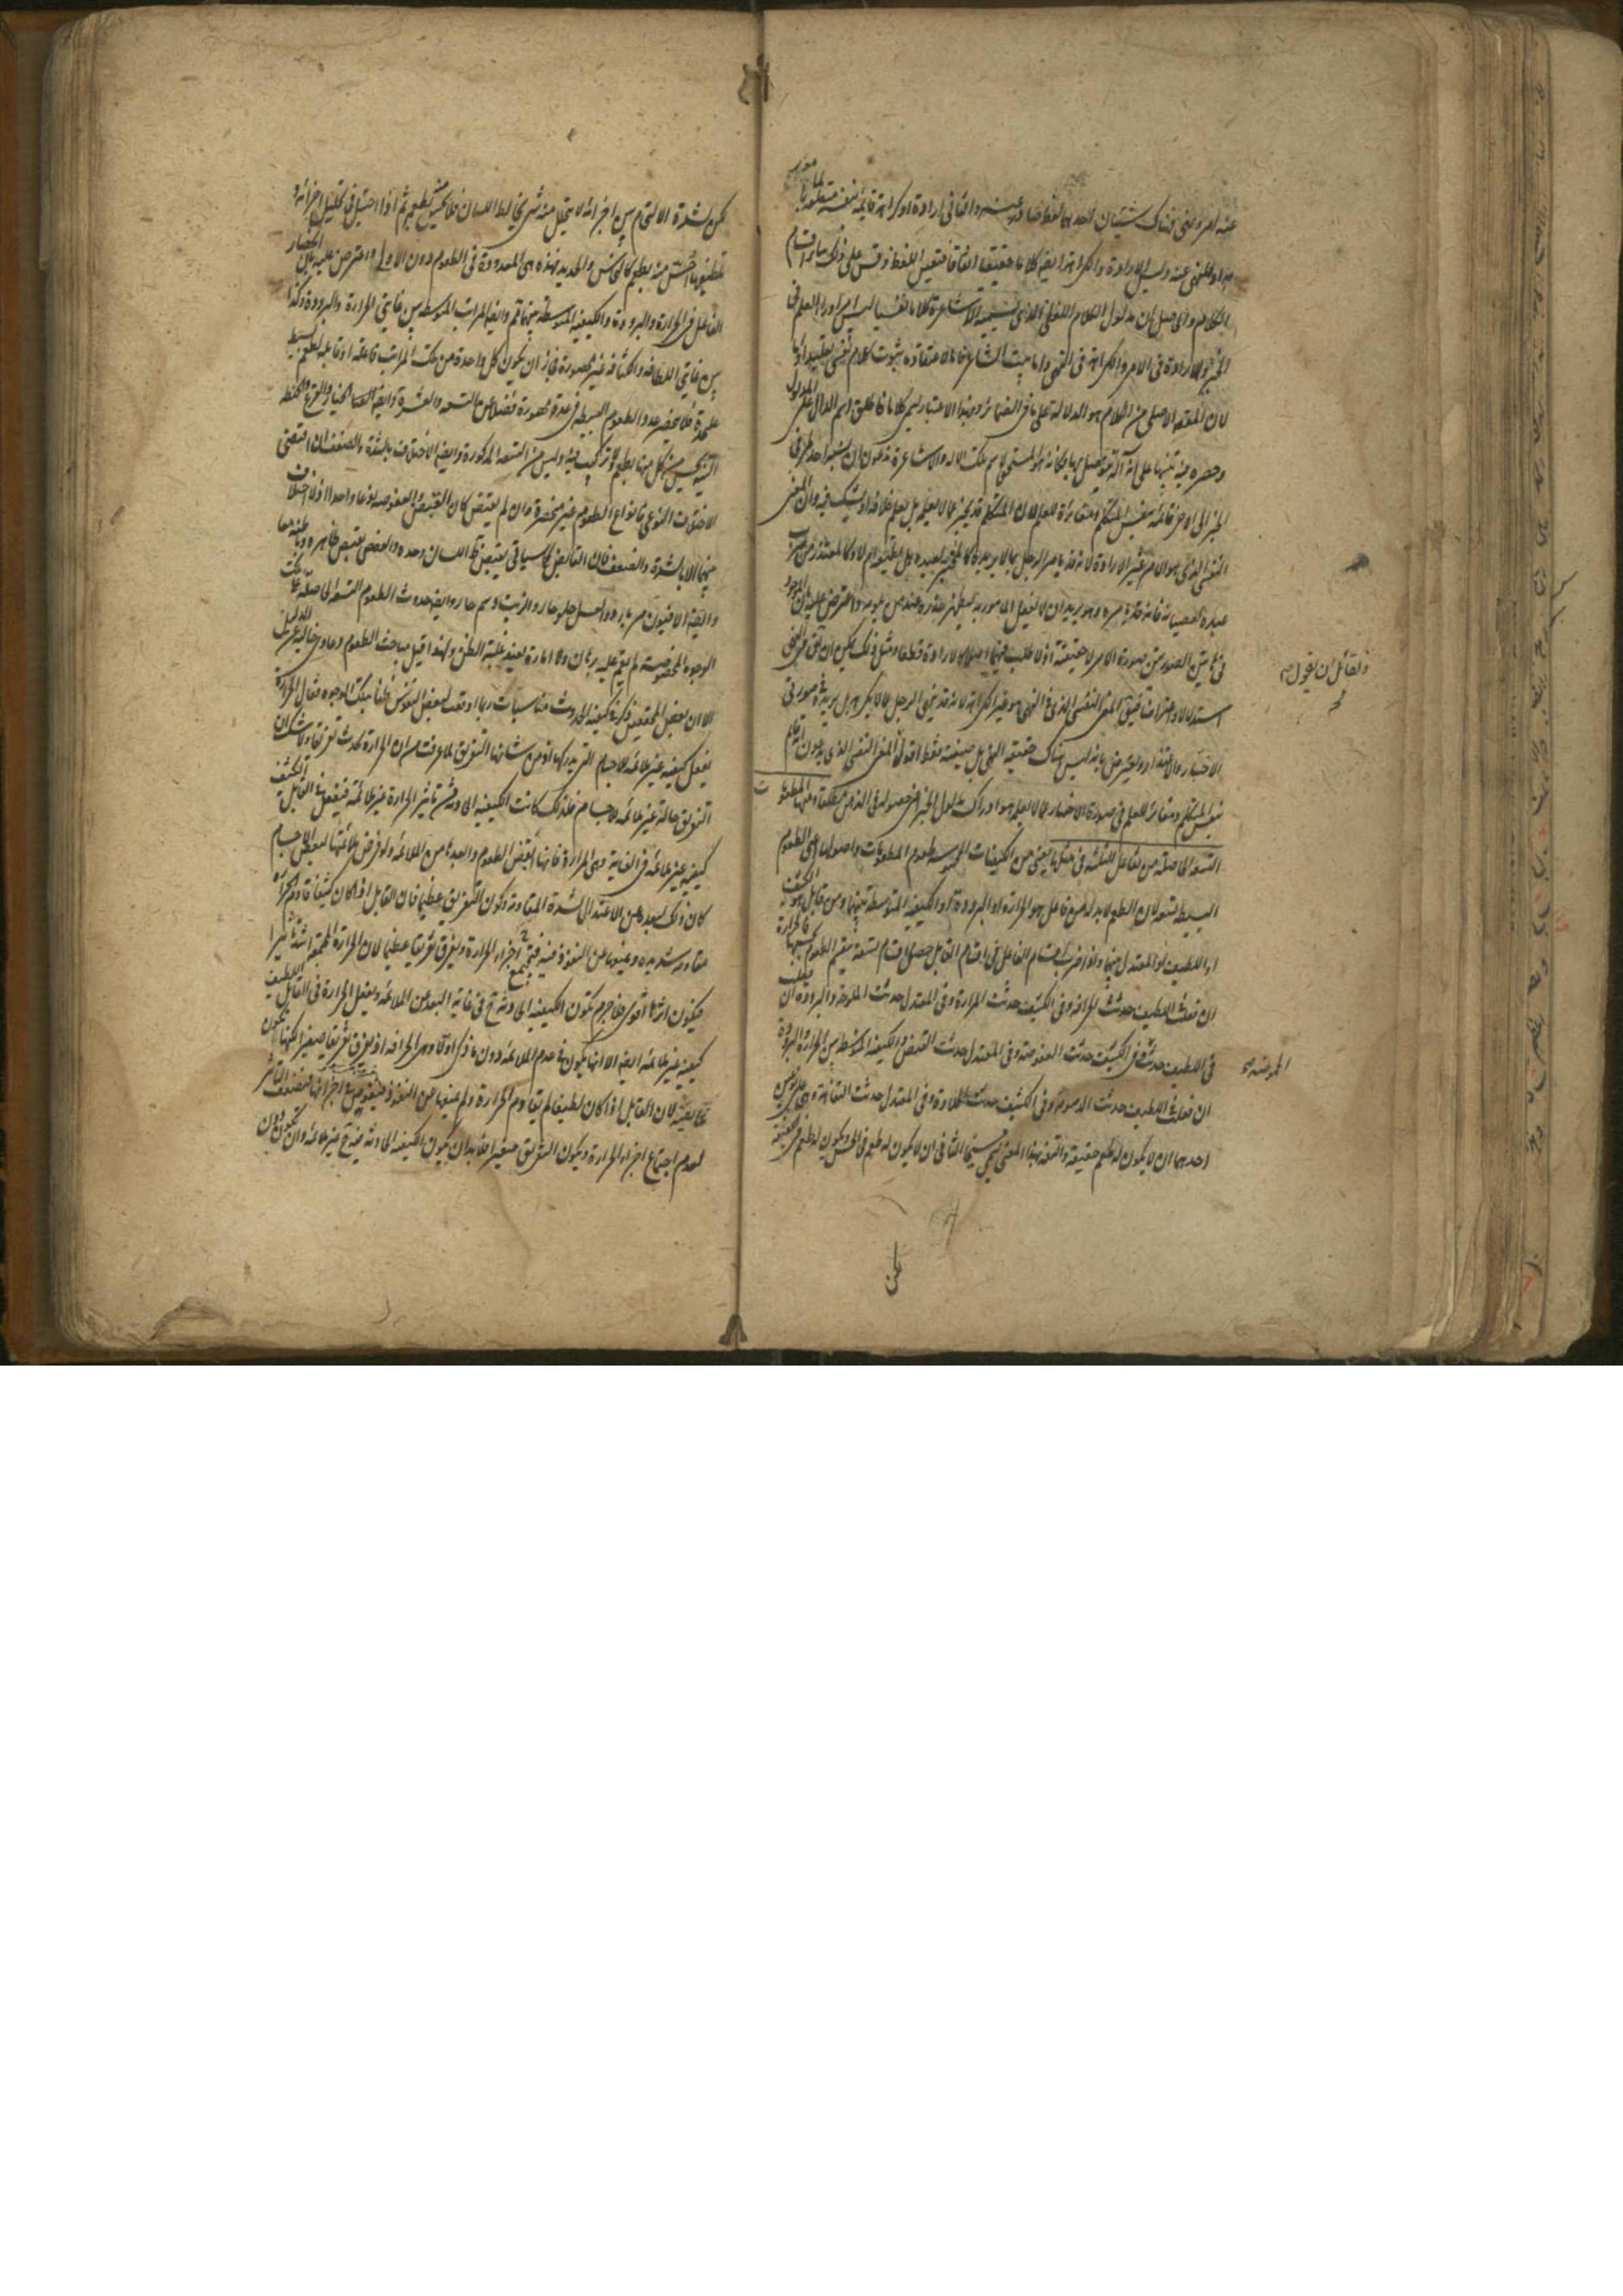 عنه امر ونهى فهناك شيئان احدهما لفظ صادر عنه والثانى ارادة او كراهة قائمة بنفسه متعلقة بالمامور
به او المنهى عنه وليست الارادة والكراهة ايضا كلاما حقيقيا اتفاقا فتعين اللفظ وقس على ذلك سائر اقسام
الكلام والحاصل ان مدلول الكلام اللفظى الذى يسميه الاشاعرة كلاما نفسيا ليس امرا وراء العلم فى
الخبر والارادة فى الامر والكراهة فى النهى واما بيت الشاعر فاما لاعتقاده ثبوت كلام نفسى تقليدا واما
لان المقصد الاصلى من الكلام هو الدلالة على ما فى الضمائر وبهذا الاعتبار يسمى كلاما فاطلق اسم الدال على المدلول
وحصره فيه تنبيها على انه آلة يتوصل بها اليه فكانه هو المستحق لاسم تلك الالة والاشاعرة يدعون ان نسبة احد طرفى
الخبر الى الاخر قائمة بنفس المتكلم ومغايرة للعلم لان المتكلم قد يخبر عما لا يعلمه بل يعلم خلافه او يشك فيه وان المعنى
النفسى الذى هو الامر غير الارادة لانه قد يامر الرجل بما لا يريده كالمختبر لعبده هل يطيعه ام لا وكالمعتذر من ضرب
عبده بعصيانه فانه قد يامره وهو يريد ان لا يفعل المامور به ليظهر عذره عند من يلومه واعترض عليه بان الموجود
فى هاتين الصورتين صورة الامر لا حقيقته اذ لا طلب فيهما اصلا كما لا ارادة قطعا ومثل ذلك يمكن ان يقال فى النهى
استدلالا واعتراضا فيقال المعنى النفسى الذى فى النهى هو غير الكراهة لانه قد ينهى الرجل عما لا يكرهه بل يريده فى صورتى
الاختبار والاعتذار ويعترض بانه ليس هناك حقيقة النهى بل صيغته فقط اقول المعنى النفسى الذى يدعون انه قائم
بنفس المتكلم ومغاير للعلم فى صورة الاخبار عما لا يعلمه هو ادراك مدلول الخبر اعنى حصوله فى الذهن مطلقا ومنها المطعومات
التسعة الحاصلة من تفاعل الثلثة فى مثلها يعنى من الكيفيات المحسوسة طعوم المطعومات واصولها اعنى الطعوم
البسيطة تسعة لان الطعم لابد له من فاعل هو الحرارة او البرودة او الكيفية المتوسطة بينهما ومن قابل هو الكثيف
او اللطيف او المعتدل بينهما واذا ضرب اقسام الفاعل فى اقسام القابل حصل اقسام تسعة ينقسم الطعوم بحسبها فالحرارة
ان فعلت فى اللطيف حدثت الحرافة وفى الكثيف حدثت المرارة وفى المعتدل حدثت الملوحة والبرودة ان فعلت
فى اللطيف حدثت وفى الكثيف حدثت العفوصة وفى المعتدل حدث القبض والكيفية المتوسطة بين الحرارة والبرودة
ان فعلت فى اللطيف حدثت الدسومة وفى الكثيف حدثت الحلاوة وفى المعتدل حدثت التفاهة وهى على نوعين
احدهما ان لا يكون له طعم حقيقة والتفه بهذا المعنى يسمى مسيخا الثانى ان لا يكون له طعم فى الحس ويكون له طعم فى الحقيقة
ولقائل ان يقول
الحموضة
لكن
لكن لشدة الالتحام بين اجزائه لا يتحلل منه شئ يخالط اللسان فلا يحس بطعمه ثم اذا احتيل فى تحليل اجزائه و
تلطيفها احس منه بطعم كالنحاس والحديد فهذه هى المعدودة فى الطعوم دون الاولى واعترض عليه بان انحصار
الفاعل فى الحرارة والبرودة والكيفية المتوسطة بينهما ثم وايضا المراتب المتوسطة بين غايتى الحرارة والبرودة وكذا
بين غايتى اللطافة والكثافة غير محصورة فجاز ان يكون كل واحدة من تلك المراتب فاعلة او قابلة لطعم بسيط
على حدة فلا ينحصر عدد الطعوم البسيطة فى عدة محصورة فضلا عن التسعة والعشرة وايضا الخيار والقرع والحنطة
النية يحس من كل منها بطعم لا تركيب فيه وليس من التسعة المذكورة وايضا الاختلاف بالشدة والضعف ان اقتضى
الاختلاف النوعى فانواع الطعوم غير منحصرة وان لم يقتض كان القبض والعفوصة نوعا واحدا اذ لا اختلاف
بينهما الا بالشدة والضعف فان القابض كما سياتى يقبض ظاهر اللسان وحده والعفص يقبض ظاهره وباطنه معا
وايضا الافيون مر بارد والعسل حلو حار والزيت دسم حار وايضا حدوث الطعوم التسعة الحاصلة على تلك
الوجوه المخصوصة لم يقم عليه برهان ولا امارة تفيد غلبة الظن ولهذا قيل مباحث الطعوم دعاوى خالية عن الدليل
الا ان بعض المحققين ذكر فى كيفية الحدوث مناسبات ربما اوقعت لبعض النفوس ظنا بتلك الوجوه فقال الحرارة
تفعل كيفية غير ملائمة للاجسام التى يدركها اذ من شانها التفريق لما عرفت من ان الحرارة تحدث تفريقا ولا شك ان
التفريق حالة غير ملائمة للاجسام فلذلك كانت الكيفية الحادثة من تاثير الحرارة غير ملائمة فتفعل فى القابل الكثيف
كيفية غير ملائمة فى الغاية وهى المرارة فانها ابغض الطعوم وابعدها من الملائمة ولو فرض ملائمتها لبعض الاجسام
كان ذلك لبعده عن الاعتدال لشدة المقاومة وكون التفريق عظيما فان القابل اذا كان كثيفا قاوم الحرارة
مقاومة شديدة ومنعها من النفوذ فيه فيجتمع اجزاء الحرارة ويفرق تفريقا عظيما لان الحرارة المجتمعة اشد تاثيرا
فيكون اثرها اقوى فلا جرم تكون الكيفية الحادثة ح فى غاية البعد عن الملائمة وتفعل الحرارة فى القابل اللطيف
كيفية غير ملائمة ايضا الا انها تكون فى عدم الملائمة دون ما ذكر اولا وهى الحرافة اذ يفرق تفريقا صغيرا لكنها تكون
غائصة لان القابل اذا كان لطيفا لم يقاوم الحرارة ولم يمنعها من النفوذ فيه فيغوص اجزائها فيضعف التاثير
لعدم اجتماع اجزاء الحرارة ويكون التفريق صغيرا فلا بد ان يكون الكيفية الحادثة فيه ح غير ملائمة وان تكون دون